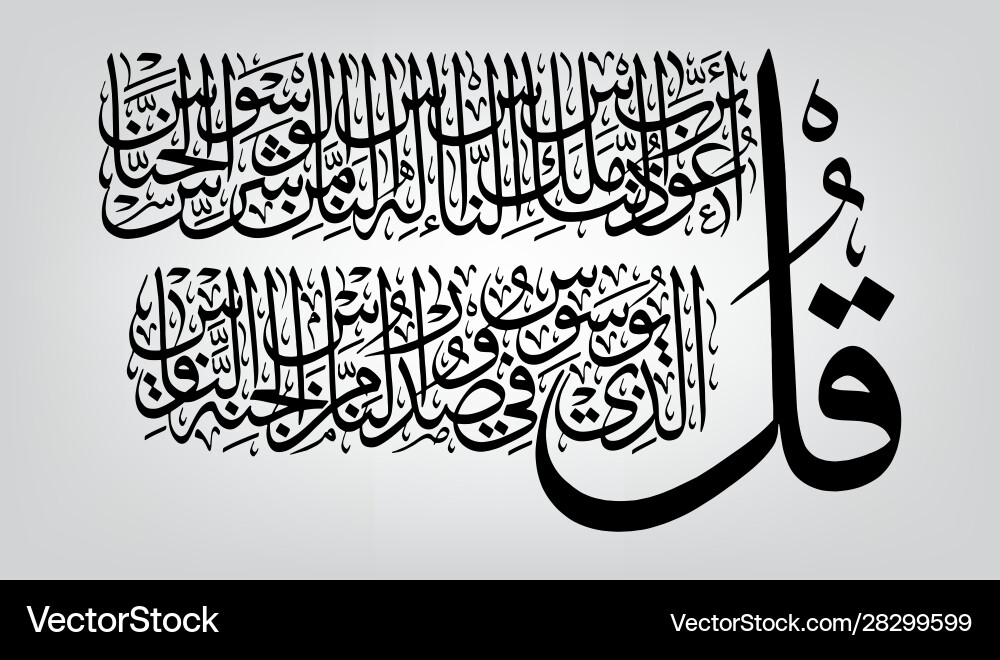 قُلْ أَعُوذُ بِرَبِّ النَّاسِ مَلِكِ النَّاسِ إِلَهِ النَّاسِ مِن شَرِّ الْوَسْوَاسِ الْخَنَّاسِ
الَّذِي يُوَسْوِسُ فِي صُدُورِ النَّاسِ مِنَ الْجِنَّةِ وَالنَّاسِ
VectorStock
VectorStock.com/28299599